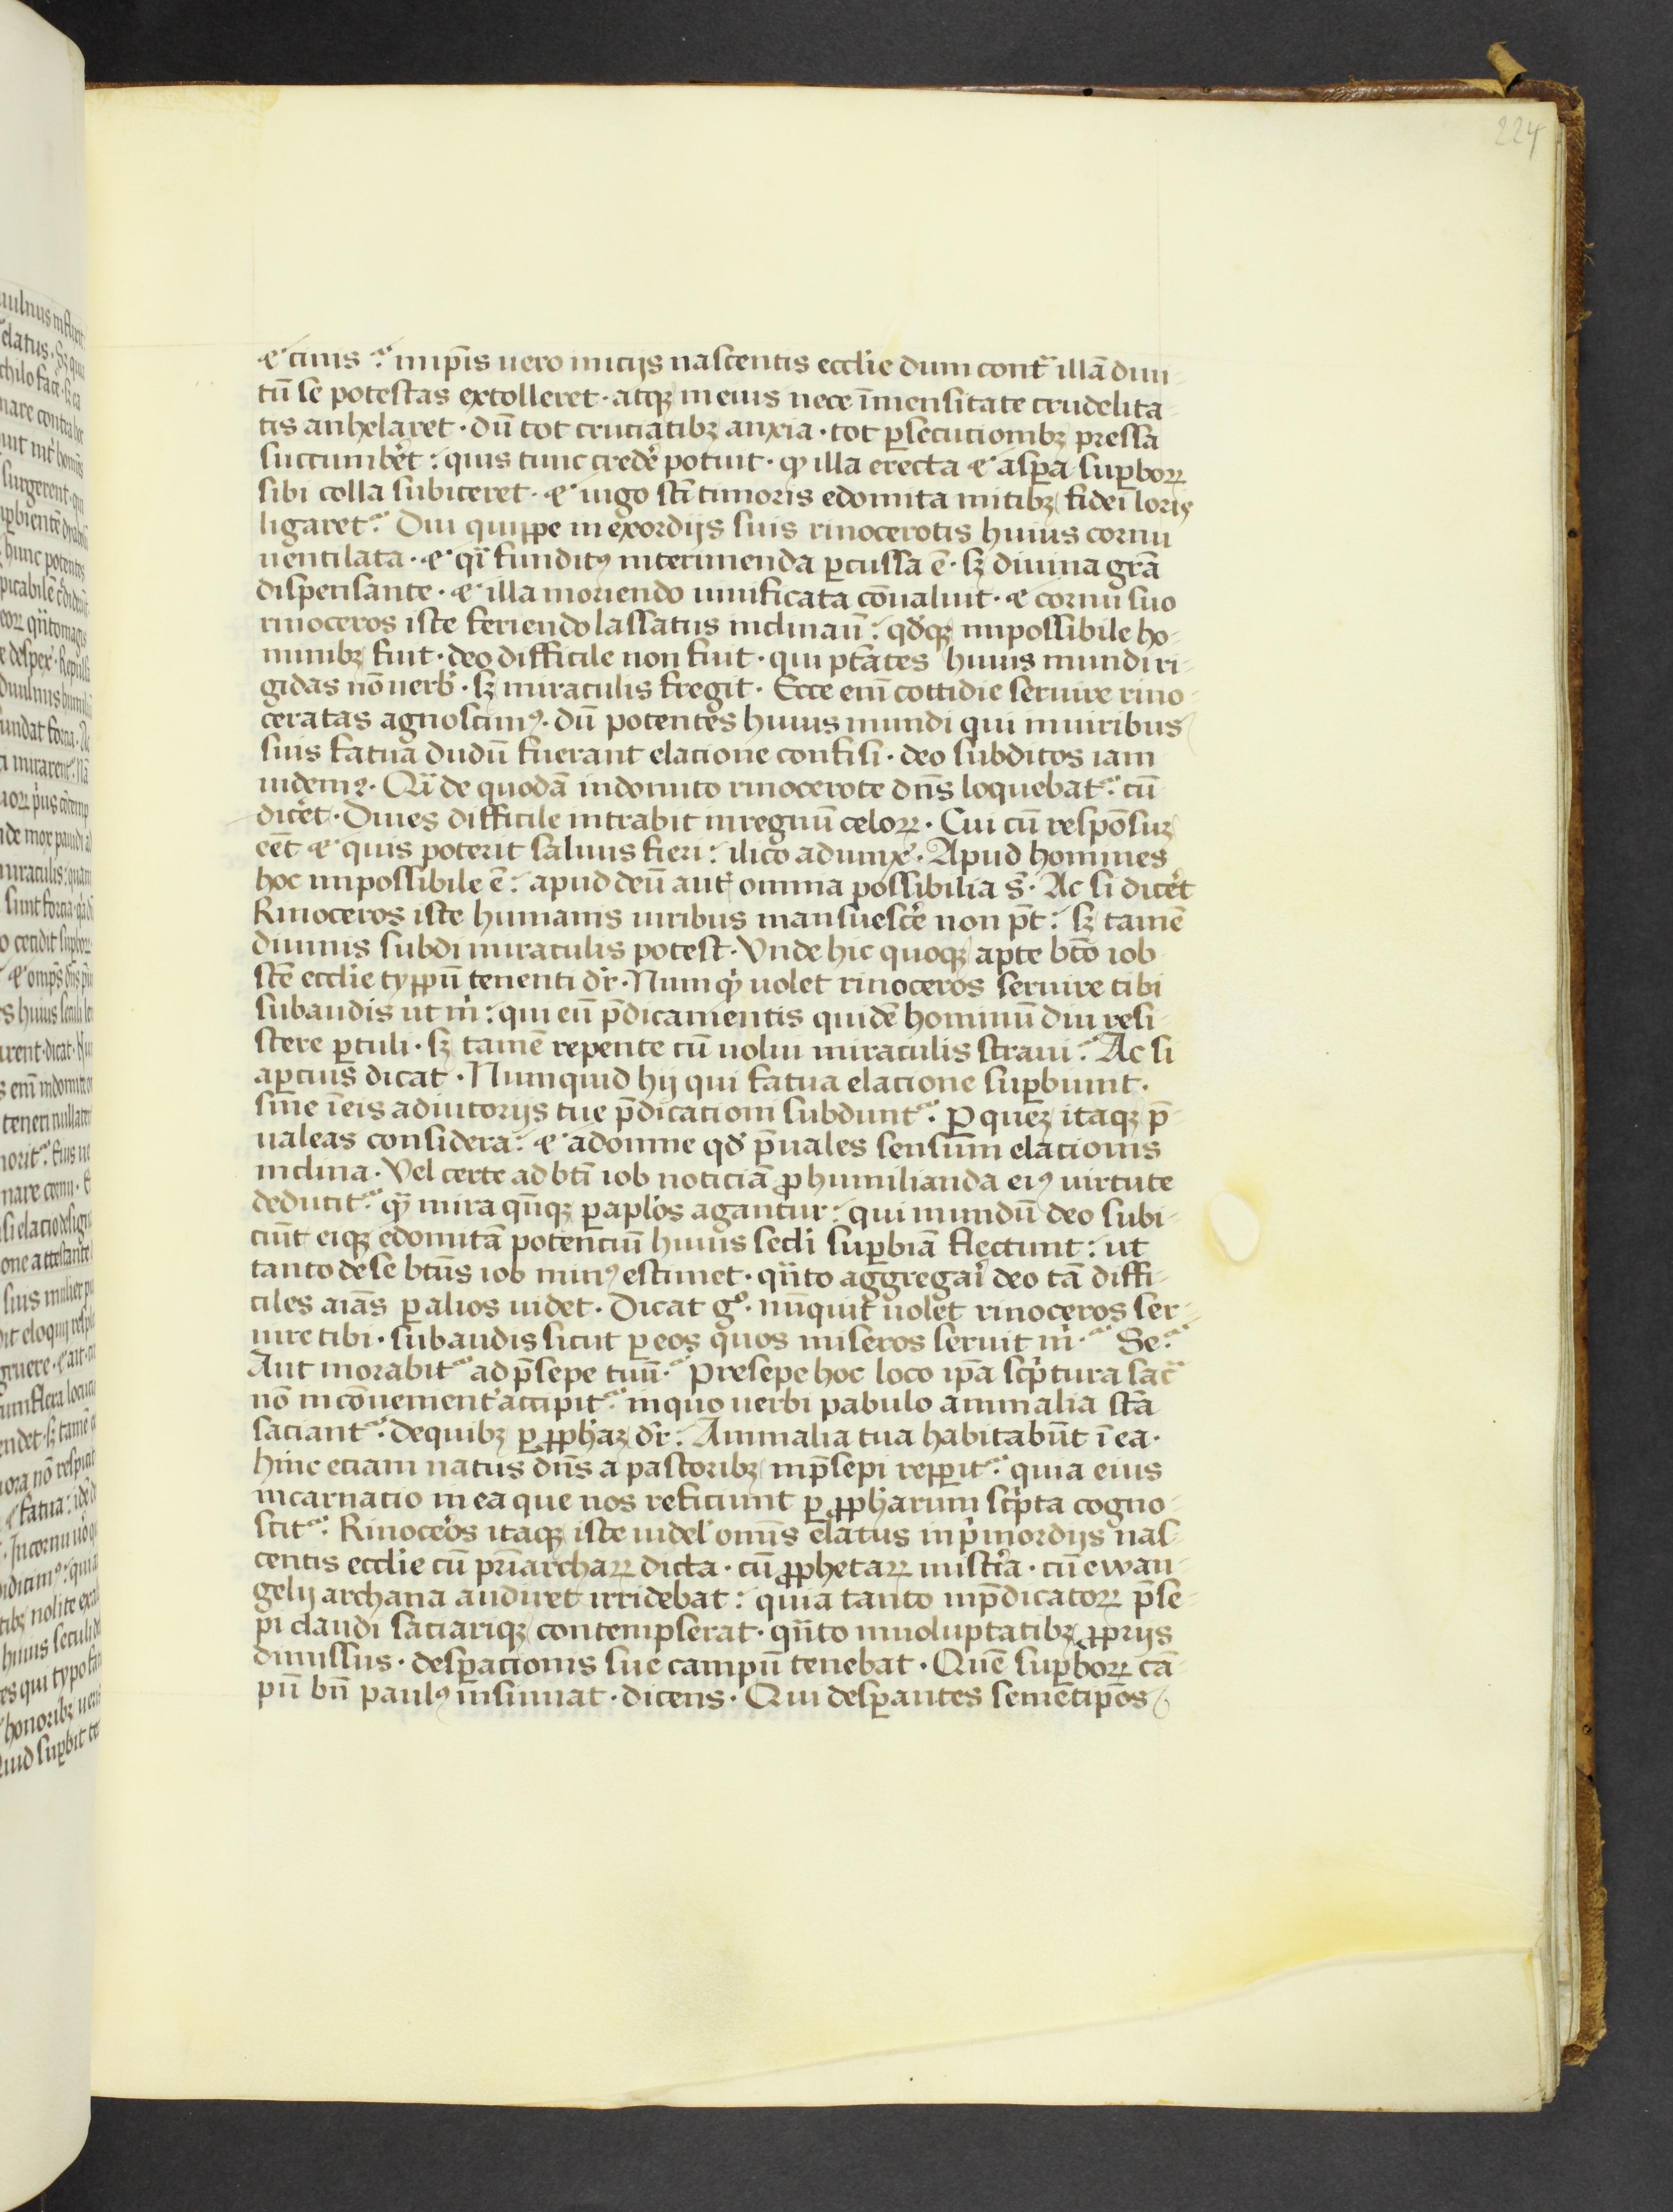 224
⁊ cinis ? inip̄is uero iniciis nascentis ecclīe dum contͣ illā diui
tū se potestas extolleret · atqꝫ in eius nece īmensitate crudelita
tis anhelaret · dū tot cruciatibꝫ anxia · tot ꝑsecucionibꝫ pressa
succumbēt : quis tunc credē potuit · ꝙ illa erecta ⁊ asꝑa suꝑboꝝ
sibi colla subiceret · ⁊ iugo sc̄i timoris edomita mitibꝫ fidei loris
ligaret ? Diu quippe in exordijs suis rinocerotis huius cornu
uentilata · ⁊ qͣi funditꝰ interimenda ꝑcussa ē · sꝫ diuina gr̄a
dispensante · ⁊ illa moriendo uiuificata cōualuit · ⁊ cornu suo
rinoceros iste feriendo lassatus inclinauͥ : qd̓qꝫ impossibile ho
minibꝫ fuit · deo difficile non fuit · qui ptātes huius mundi ri
gidas nō uerb̓ · sꝫ miraculis fregit · Ecce eni᷒ cottidie seruire rino
ceratas agnoscimꝰ · dū potentes huius mundi qui in uiribus
suis fatua dudū fuerant elacione confisi · deo subditos iam
uidemꝰ · Qͣi de quodā indomito rinocerote dn̄s loquebatͬ : cū
dicēt · Diues difficile intrabit in regnū celoꝝ · Cui cū respōsuꝫ
eēt ⁊ quis poterit saluus fieri : ilico adiunxͤ · Apud homines
hoc impossibile ē : apud deū aut̄ omnia possibilia s̄ · Ac si dicēt
Rinoceros iste humanis uiribus mansuescē non pt̄ : sꝫ tamē
diuinis subdi miraculis potest · Vnde hic quoqꝫ apte btō iob
sc̄e ecclīe typpū tenenti dr̄ · Numqͥ uolet rinoceros seruire tibi
subaudis ut m̄ : qui eū p̄dicamentis quidē hominū diu resi
stere ꝑtuli · sꝫ tamē repente cū uolui miraculis straui ? Ac si
aꝑcius dicat · Numquid hij qui fatua elacione suꝑbiunt ·
sine meis adiutorijs tue p̄dicationi subduntͬ ? Ꝑ queꝫ itaqꝫ p̄
ualeas considera : ⁊ ad omne qd̓ p̄uales sensum elacionis
inclina · Vel certe ad bt̄i iob noticiā ꝓ humilianda eiꝰ uirtute
deducitͬ qͣ mira qn̄qꝫ ꝑ aplōs agantur : qui mundū deo subi
ciūt eiqꝫ edomitā potenciū huius secli suꝑbiā flectunt : ut
tanto de se bt̄us iob minꝰ estimet · qͣnto aggregari deo tā diffi
ciles aīas ꝑ alios uidet · Dicat gͦ · nūquit uolet rinoceros ser
uire tibi · subaudis sicut ꝑ eos quos misero seruit m̄ · Se ?
Aut morabitͬ ad p̄sepe tuū ? Presepe hoc loco ip̄a scͥptura sacͣ
nō inconuenient̓ accipitͬ : in quo uerbi pabulo animalia sc̄a
saciantͬ · de quibꝫ ꝑ ꝓphāꝫ dr̄ : Animalia tua habitabūt ī ea ·
hinc eciam natus dn̄s a pastoribꝫ in p̄sepi repꝑitͬ : quia eius
incarnacio in ea que nos reficiunt ꝑ ꝓphārum scͥpta cogno
scitͬ : Rinoceros itaqꝫ iste uidel̓ omīs elatus in pͥmordijs nas
centis ecclīe cū prīarchaꝝ dicta · cū ꝓphetaꝝ mistīa · cū ewan
gelij archana audiret irridebat : quia tanto in p̄dicatoꝝ p̄se
pi claudi saciariqꝫ contempserat · qͣnto in uoluptatibꝫ ꝓprijs
dimissus · desꝑacionis sue campū tenebat · Quē suꝑboꝝ cā
pū bn̄ paulꝰ insinuat · dicens · Qui desꝑantes semetip̄os